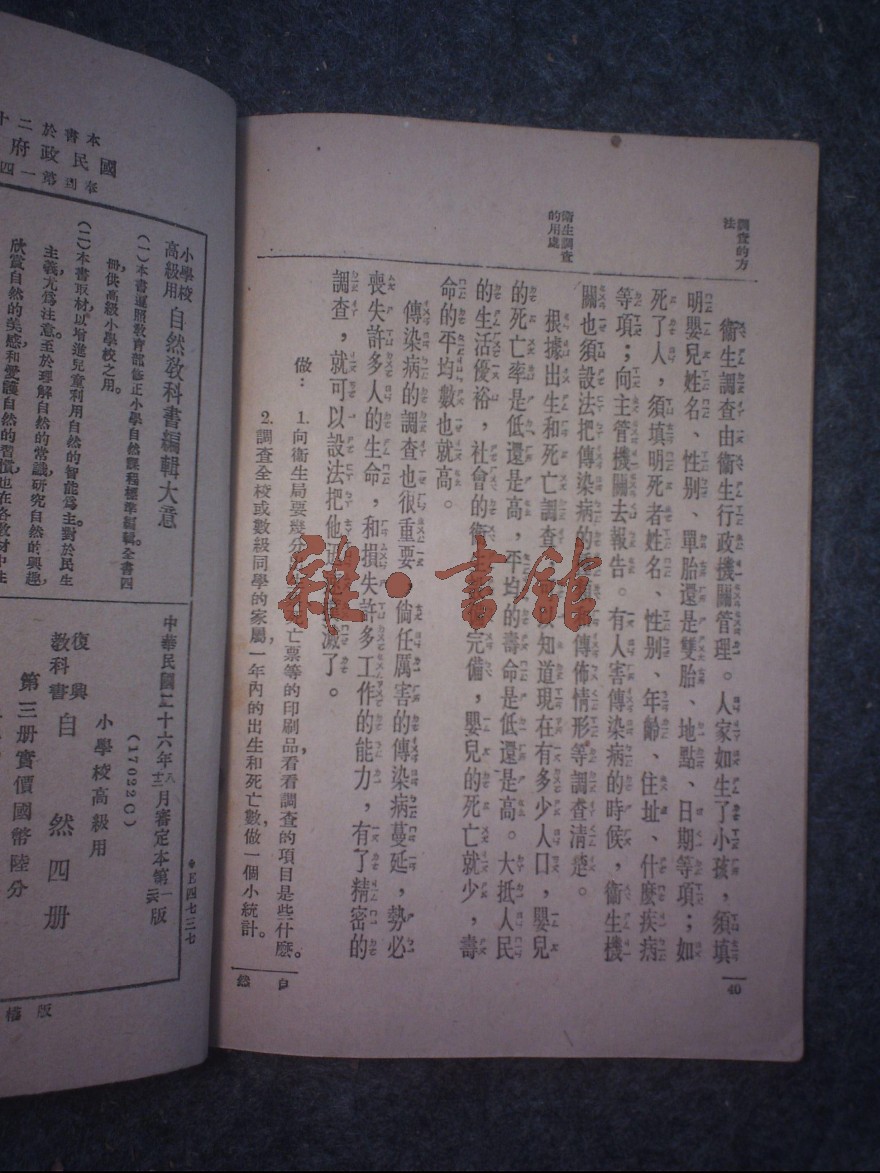 調查的方
法
衞生調查
的用處
衞生調查由衞生行政機關管理。人家如生了小孩，須填
明嬰兒姓名、性別、單胎還是雙胎、地點、日期等項；如
死了人，須填明死者姓名、性別、年齡、住址、什麼疾病
等項；向主管機關去報告。有人害傳染病的時候，衞生機
關也須設法把傳染病的傳佈情形等調查清楚。
根據出生和死亡調查知道現在有多少人口，嬰兒
的死亡率是低還是高，平均的壽命是低還是高。大抵人民
的生活優裕，社會的衞完備，嬰兒的死亡就少，壽
命的平均數也就高。
傳染病的調查也很重要倘任厲害的傳染病蔓延，勢必
喪失許多人的生命，和損失許多工作的能力，有了精密的
調查，就可以設法把他滅了。
做：1. 向衞生局要幾分亡票等的印刷品，看看調查的項目是些什麼。
2. 調查全校或數級同學的家屬一年內的出生和死亡數做一個小統計。
40
自然
雜·書館
本書於二十
國民政府
小學校
高級用
自然教科書編輯大意
（一）本書遵照教育部修正小學自然課程標準編輯全書四
冊，供高級小學校之用。
（二）本書取材，以增進兒童利用自然的智能爲主，對於民生
主義，尤爲注意。至於理解自然的常識，研究自然的興趣
欣賞自然的美感和愛護自然的習慣，也在各教材中
中華民國二十六年八月審定本第一版
(17022C)
小學校高級用
復興
教科書
自然四册
第三册實價國幣陸分
＊E四七三七
版